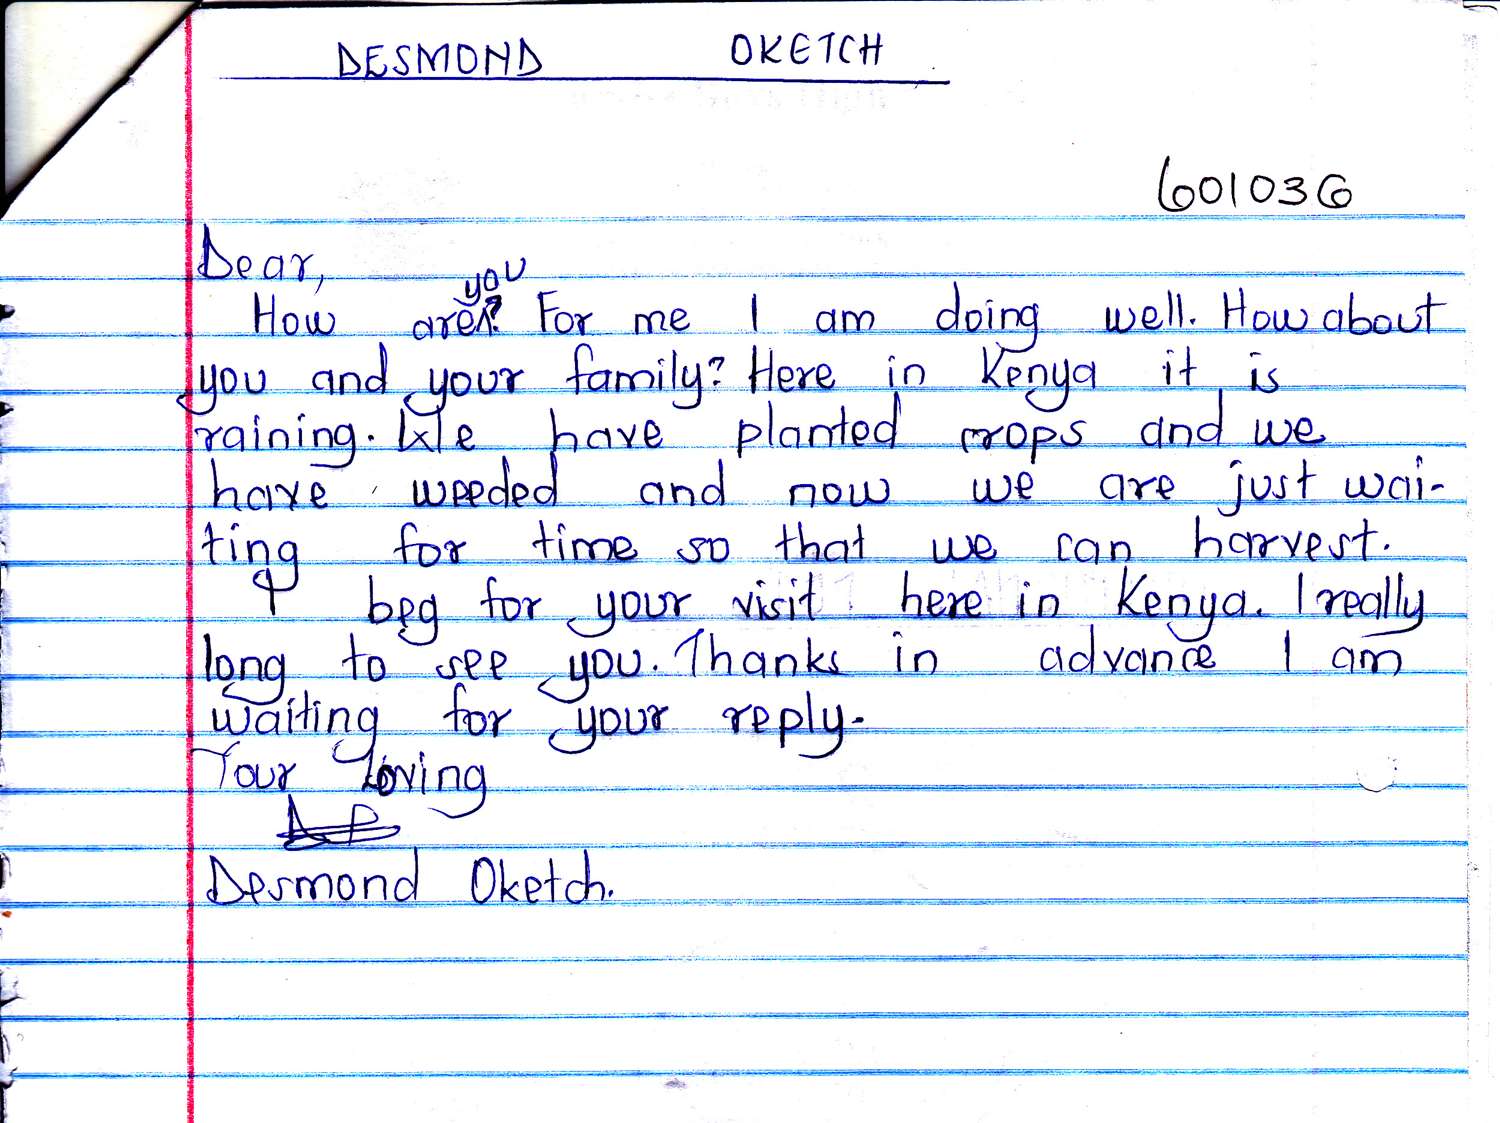 DESMOND OKETCH
601036
Dear,
How are you? For me I am doing well. How about
you and your family? Here in Kenya it is
raining. We have planted crops and we
have weeded and now we are just wai-
ting for time so that we can harvest.
I beg for your visit here in Kenya. I really
long to see you. Thanks in advance I am
waiting for your reply.
Your loving
Desmond Oketch.